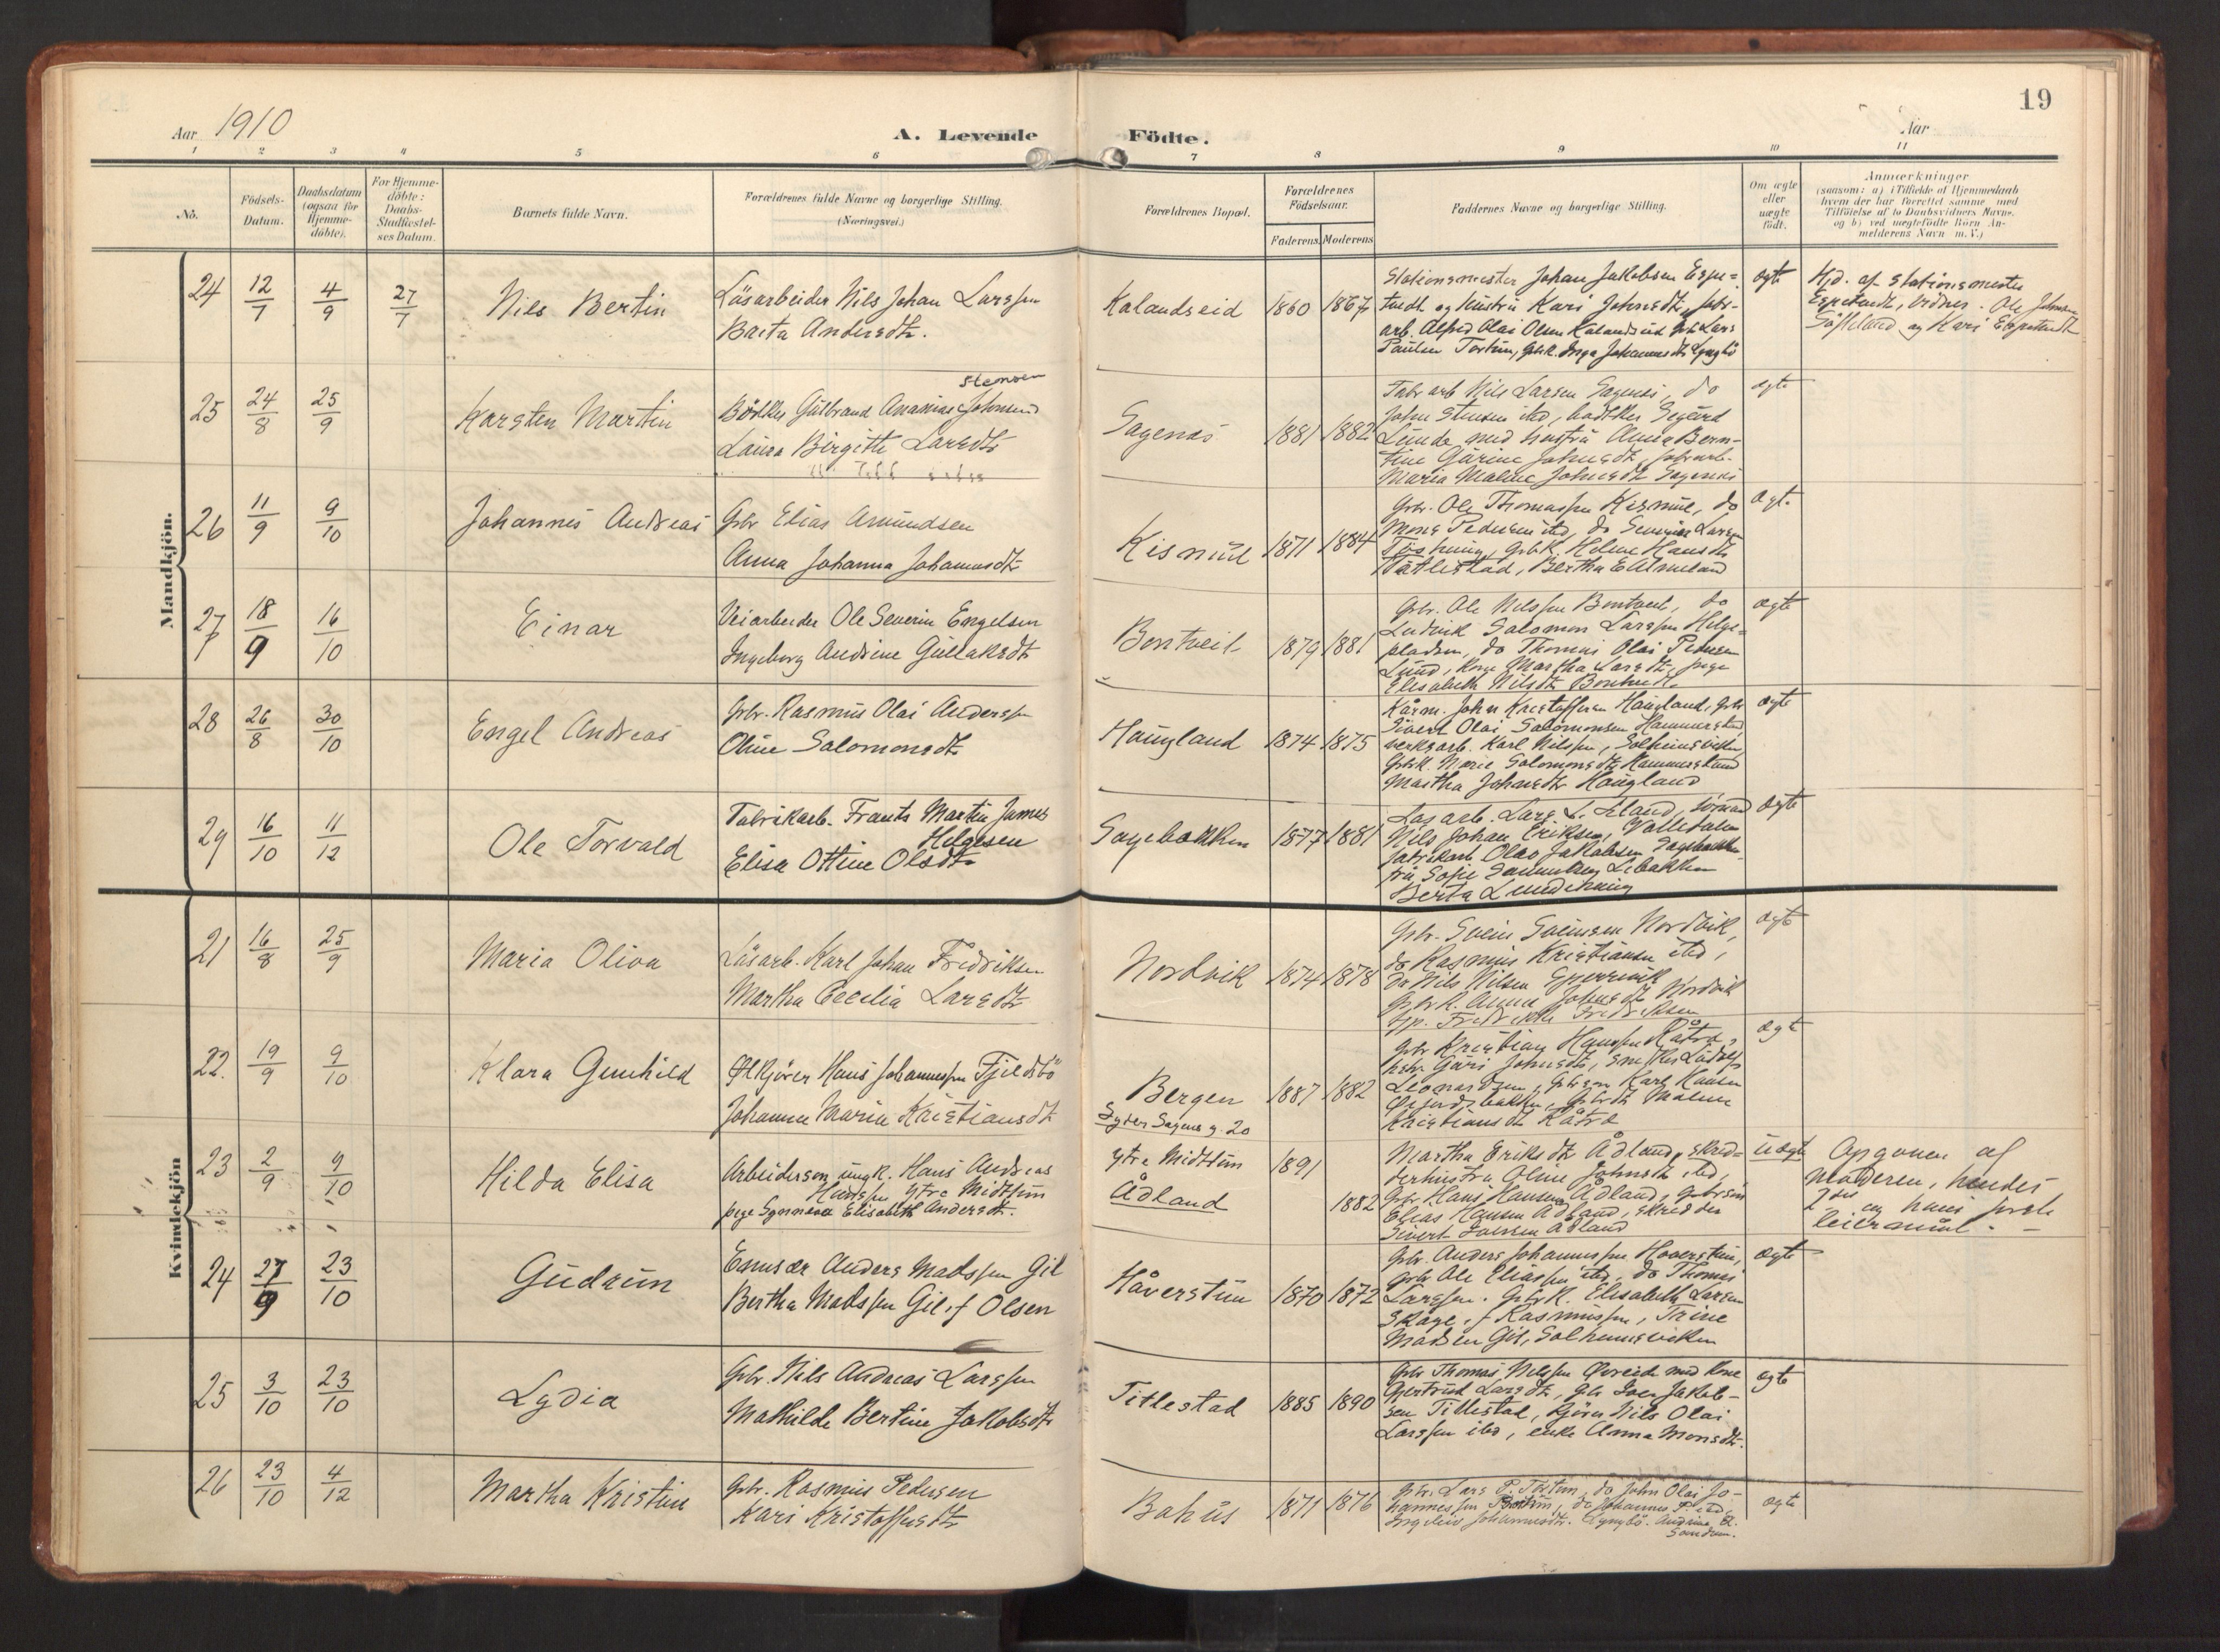 19
Aar 1910
A. Levende Födte.
Aar
1 2 3 4 5 6 7 8 9 10 11
No.
Födsels-
Datum.
Daabsdatum
(ogsaa for
Hjemme-
döbte).
For Hjemme-
döbte:
Daabs-
Stadfæstel-
ses Datum.
Barnets fulde Navn.
Forældrenes fulde Navne og borgerlige Stilling.
(Næringsvei.)
Forældrenes Bopæl.
Forældrenes
Födselsaar.
Faderens. Moderens
Faddernes Navne og borgerlige Stilling.
Om ægte
eller
uægte
födt.
Anmærkninger
(saasom: a) i Tilfælde af Hjemmedaab
hvem der har forrettet samme med
Tilföielse af to Daabsvidners Navne.
og b) ved uægtefödte Börn An-
melderens Navn m. V.)
Mandkjön.
24 12/7 4/9 27/7 Nils Bertin
Läsarbeider Nils Johan Larssen
Barta Andersdtr.
Kalandseid 1860 1867
Stationsmester Johan Jakobsen Espe=
tvedt og hustru Kari Johnsdtr, fabr-
arb. Alfred Olai Olsen Kalandseid Gbr Lars
Paulsen Tostun, Gbk. Inga Johannesdtr Lyngbö
ægte
Hjd. af stationsmester
Espetvedt, Vidner: Ole Johnsen
og Kari Espetvedt
25 24/8 25/9 Karsten Martin
stensen
Bödker Gulbrand Ananias Johnsen
Laura Birgitte Larsdtr
Sagenes 1881 1882
Fabr arb Nils Larsen Sagenes, do
John Stensen ibd, bödker Sigurd
Lunde med hustru Anna Bern-
tine Gurine Johnsdtr, fabrarb.
Maria Maline Johnsdtr Sagenes
ægte
26 11/9 9/10 Johannes Andreas
Gbr Elias Amundsen
Anna Johanna Johannesdtr
Kismul 1871 1884
Gbr. Ole Thomassen Kismul, do
Mons Pedersen ibd, do Larsen
Gbk. Helene Hansdtr
Titlestad, Bertha E Almeland
ægt.
27 18/9 16/10 Einar
Veiarbeider Ole Severin Engelsen
Ingeborg Andrine Gullaksdtr
Bontveit 1879 1881
Gbr. Ole Nilssen Bontveit, do
Ludvik Salomon Larssen Helge=
pladsen, do Thomas Olai Pedersen
Lund, Kone Martha Larsdtr, pige
Elisabeth Nilsdtr Bontveit
ægte
28 26/8 30/10 Engel Andreas
Gbr. Rasmus Olai Anderssen
Oline Salomonsdtr
Haugland 1874 1875
Kårm. John Kristoffersen Haugland, Gbr
Sivert Olai Salomonsen Hammersland
verksarb. Karl Nilssen, Solheimsviken
Gbk. Marie Salomonsdtr Hammersland
Martha Johnsdtr Haugland
ægte
29 16/10 11/12 Ole Torvald
Fabrikarb. Frants Martin James
Helgesen
Elisa Ottine Olsdtr
Sagebakken 1877 1881
Lars L. Aland,
Nils Johan Eriksen,
fabrikarb Olav Jakobsen Sagebakken
fru Sofie
Berta
ægte
Kvindekjön
21 16/8 25/9 Maria Oliva
Läsarb. Karl Johan Fredriksen
Martha Cecilia Larsdtr
Nordvik 1874 1878
Gbr. Svein Sveinsen Nordvik,
do Rasmus Kristiansen ibd,
do Nils Nilsen
Gbk. Anna Johnsdtr Nordvik
Fredrikke Fredriksen
ægte
22. 19/9 9/10 Klara Gunhild
Ölkjörer Hans Johannessen Fjeldsbö
Johanna Maria Kristiansdtr
Bergen 1887 1882
Ydre Sagens g. 20
Gbr Kristian Hanssen Råtræ,
Guri Johnsdtr, Ludolf
Leonardsen, Gbrsön Karl Hansen
Gbrdt Maline
Kristiansdtr Råtræ
ægte
23 2/9 9/10 Hilda Elisa
Arbeidersön ungk. Hans Andreas
Hanssen Ytre Midttun
pige Synneva Elisabeth Andersdtr.
Ytre Midttun 1891
Ådland 1882
Martha Eriksdtr Ådland, skræd-
derhustru Oline Johnsdtr ibd,
Gbr. Hans Hansen Ådland, Gbrsön
Elias Hansen Ådland, skrædder
Sivert Ådland
uægte
Opgoven af
Moderen, hendes
2det og hans förste
leiermaal.
24 27/9 23/10 Gudrun
Anders Madssen Gil
Bertha Madssen Gil, f. Olsen
Håverstun 1870 1872
Gbr. Anders Johannessen Haverstun,
Gbr Ole Eliassen ibd, do Thomas
Larssen. Gbk. Elisabeth Larsen
Skage, f Rasmussen, Trine
Madsen Gil, Solheimsviken
ægte
25 3/10 23/10 Lydia
Gbr. Nils Andreas Larssen
Mathilde Bertine Jakobsdtr
Titlestad 1885 1890
Gbr Thomas Nilssen Övreide med Kone
Gjertrud Larsdtr, Gbr Iver Jakob-
sen Titlestad, Kjörer Nils Olai
Larssen ibd, enke Anna Monsdtr.
ægte
26 23/10 4/12 Martha Kristine
Gbr. Rasmus Pedersen
Kari Kristoffersdtr
Bahus 1871 1876
Gbr. Lars P. Tostun, do John Olai Jo-
hannessen, do Johannes P. ibd,
Johannesdtr. Lyngbö. Andrine
ægte